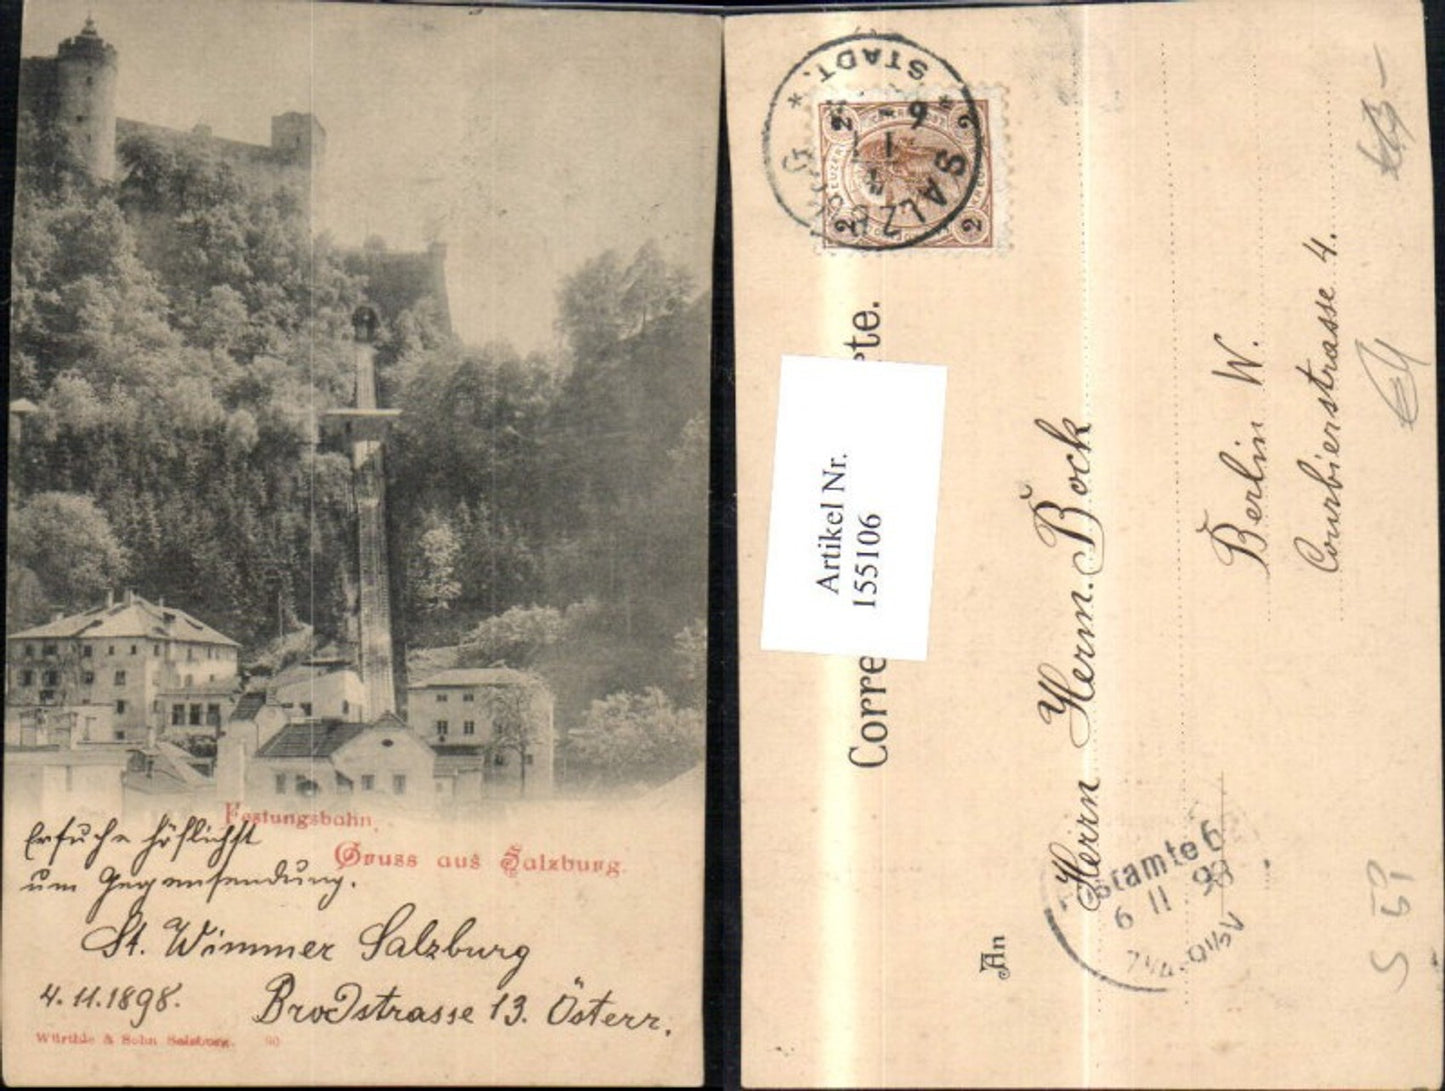 Festungsbahn.
Gruss aus Salzburg.
Ersuche höflichst
um Gegensendung.
St. Wimmer Salzburg
4.11.1898. Brodstrasse 13. Österr.
Würthle & Sohn Salzburg. 90
SALZBURG
* STADT. *
6
11
2 2
2 2
Artikel Nr.
155106
Corre
te.
An
Herrn Herm. Bock
Berlin W.
Courbierstrasse 4.
6 11 98